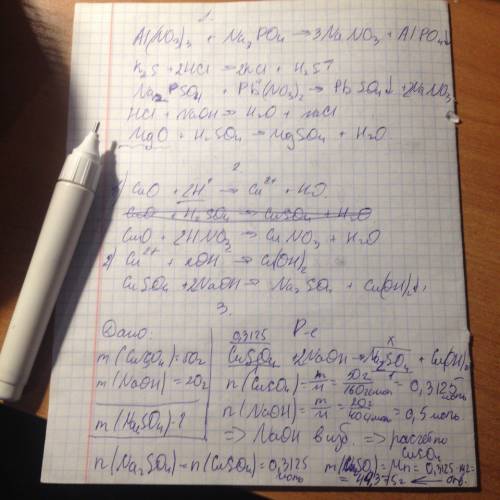 1.
Al(NO3)3 + Na3PO4 → 3NaNO3 + AlPO4↓
K2S + 2HCl = 2KCl + H2S↑
Na2SO4 + Pb(NO3)2 → PbSO4↓ + 2NaNO3
HCl + NaOH → H2O + NaCl
MgO + H2SO4 → MgSO4 + H2O
2
1) CuO + 2H⁺ → Cu²⁺ + H2O
CuO + H2SO4 → CuSO4 + H2O
CuO + 2HNO3 → CuNO3 + H2O
2) Cu²⁺ + 2OH → Cu(OH)2
CuSO4 + 2NaOH → Na2SO4 + Cu(OH)2↓
3.
Дано:
m(CuSO4) = 50г
m(NaOH) = 20г
m(Na2SO4) - ?
Р-е
0,3125 x
CuSO4 + 2NaOH → Na2SO4 + Cu(OH)2
n(CuSO4) = m/M = 50г/160г/моль = 0,3125 моль
n(NaOH) = m/M = 20г/40г/моль = 0,5 моль
=> NaOH в изб. => расчет по CuSO4
n(Na2SO4) = n(CuSO4) = 0,3125 моль
= 44,375г ← отв.